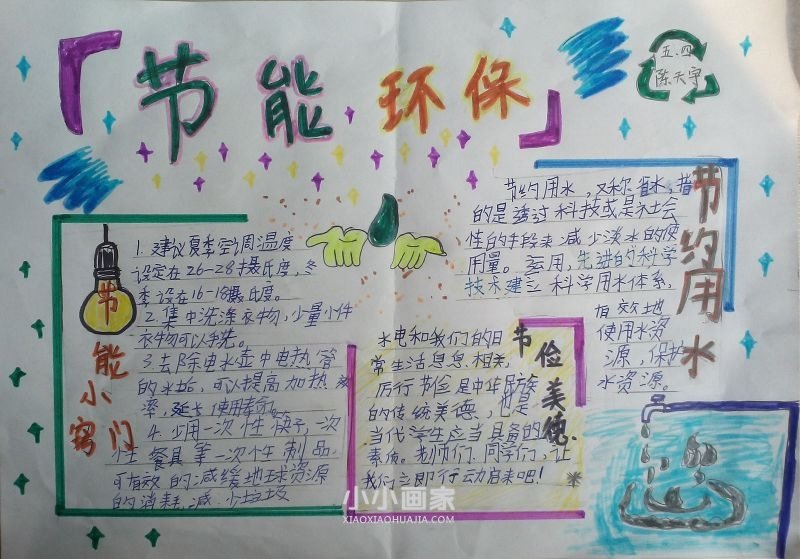 节能环保
五.四
陈天宇
节能小窍门
1.建议夏季空调温度
设定在26-28摄氏度,冬
季设在16-18摄氏度。
2.集中洗涤衣物,少量小件
衣物可以手洗。
3.去除电水壶中电热管
的水垢,可以提高加热效
率,延长使用寿命。
4.少用一次性筷子,一次
性餐具等一次性制品,
可有效的减缓地球资源
的消耗,减少垃圾
节俭美德.
水电和我们的日
常生活息息相关,
厉行节俭是中华民族
的传统美德,也是
当代学生应当具备的
素质。老师们、同学们,让
我们立即行动启来吧!
节约用水
节约用水,又称省水,指
的是透过科技或是社会
性的手段来减少淡水的使
用量。运用,先进的科学
技术建立科学用水体系,
有效地
使用水资
源,保护
水资源。
小小画家
XIAOXIAOHUAJIA.COM